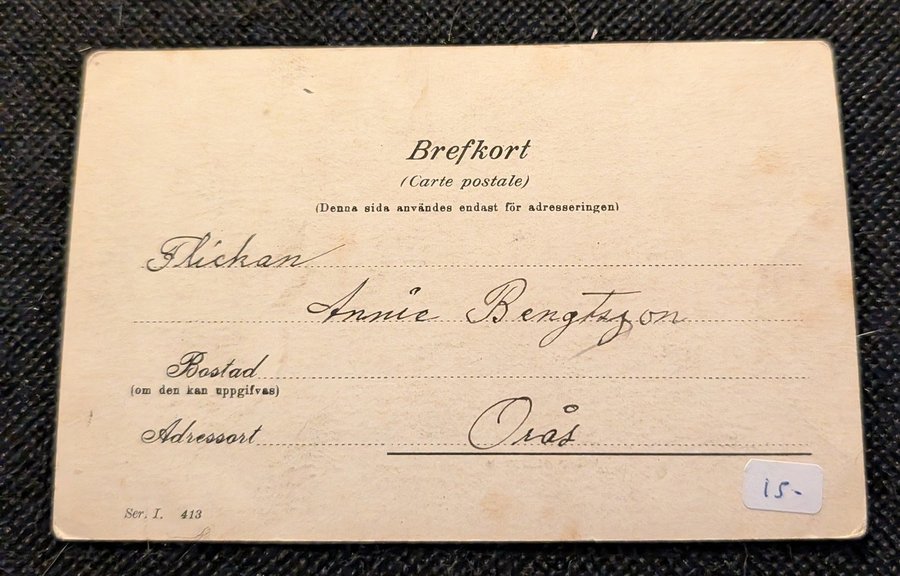 Brefkort
(Carte postale)
(Denna sida användes endast för adresseringen)
Flickan
Annie Bengtsson
Bostad
(om den kan uppgifvas)
Orås
Adressort
Ser. I. 413
15-